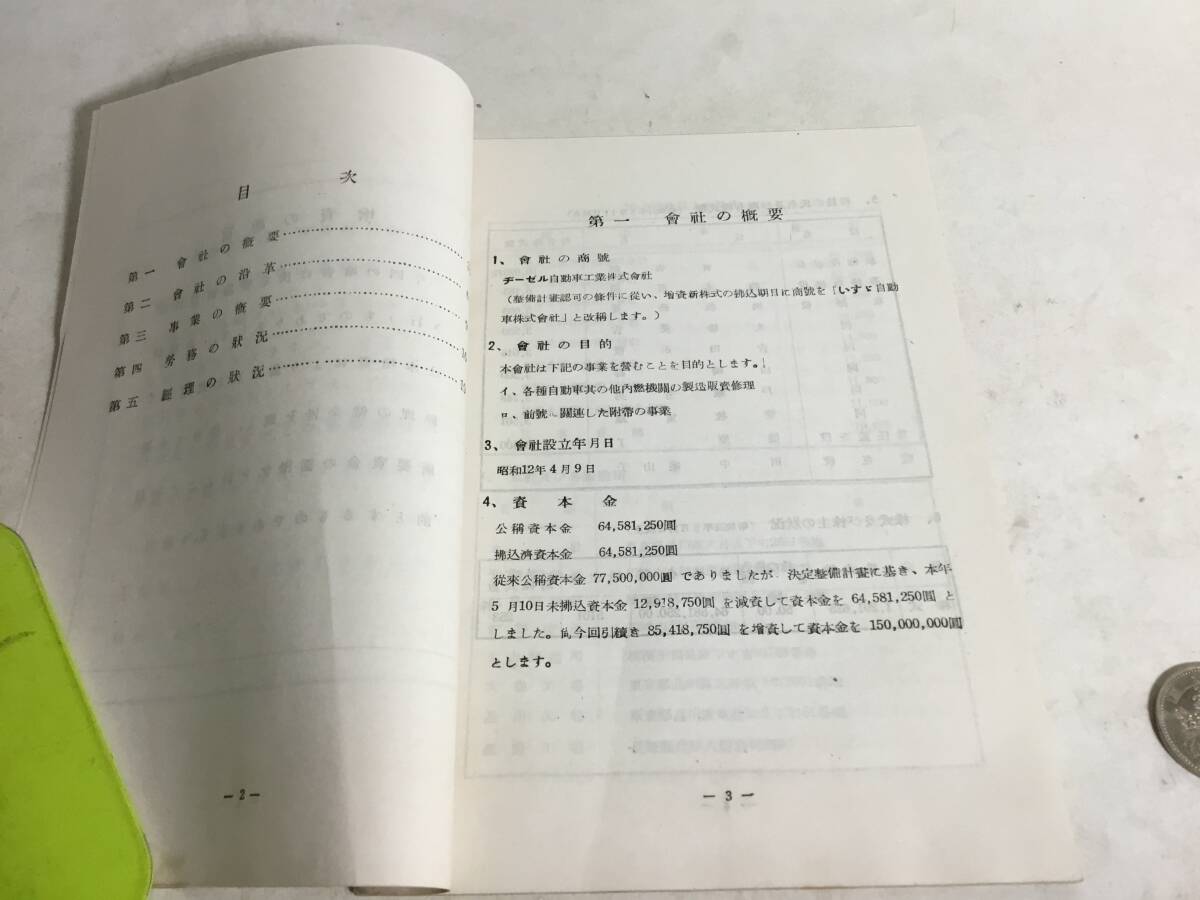 目次
第一 會社の概要
第二 會社の沿革
第三 事業の概要
第四 勞務の狀況
第五 經理の狀況
— 2 —
第一 會社の概要
1、會社の商號
ヂーゼル自動車工業株式會社
(整備計畫認可の條件に従い、増資新株式の拂込期日に商號を「いすゞ自動
車株式會社」と改稱します。)
2、會社の目的
本會社は下記の事業を營むことを目的とします。
イ、各種自動車其の他內燃機關の製造販賣修理
ロ、前號に關連した附帶の事業
3、會社設立年月日
昭和12年4月9日
4、資本金
公稱資本金 64,581,250圓
拂込濟資本金 64,581,250圓
從來公稱資本金 77,500,000圓 でありましたが 決定整備計畫に基き、本年
5月10日未拂込資本金 12,918,750圓 を減資して資本金を 64,581,250圓 と
しました。尙今回引續き 85,418,750圓 を增資して資本金を 150,000,000圓
とします。
— 3 —